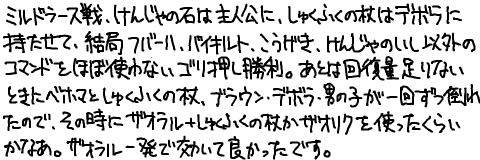 ミルドラース戦、けんじゃの石は主人公に、しゅくふくの杖はデボラに
持たせて、結局フバーハ、バイキルト、こうげき、けんじゃのいし以外の
コマンドをほぼ使わないゴリ押し勝利。あとは回復量足りない
ときにベホマとしゅくふくの杖、ブラウン・デボラ・男の子が一回ずつ倒れ
たので、その時にザオラル+しゅくふくの杖かザオリクを使ったくらい
かなあ。ザオラル一発で効いて良かったです。